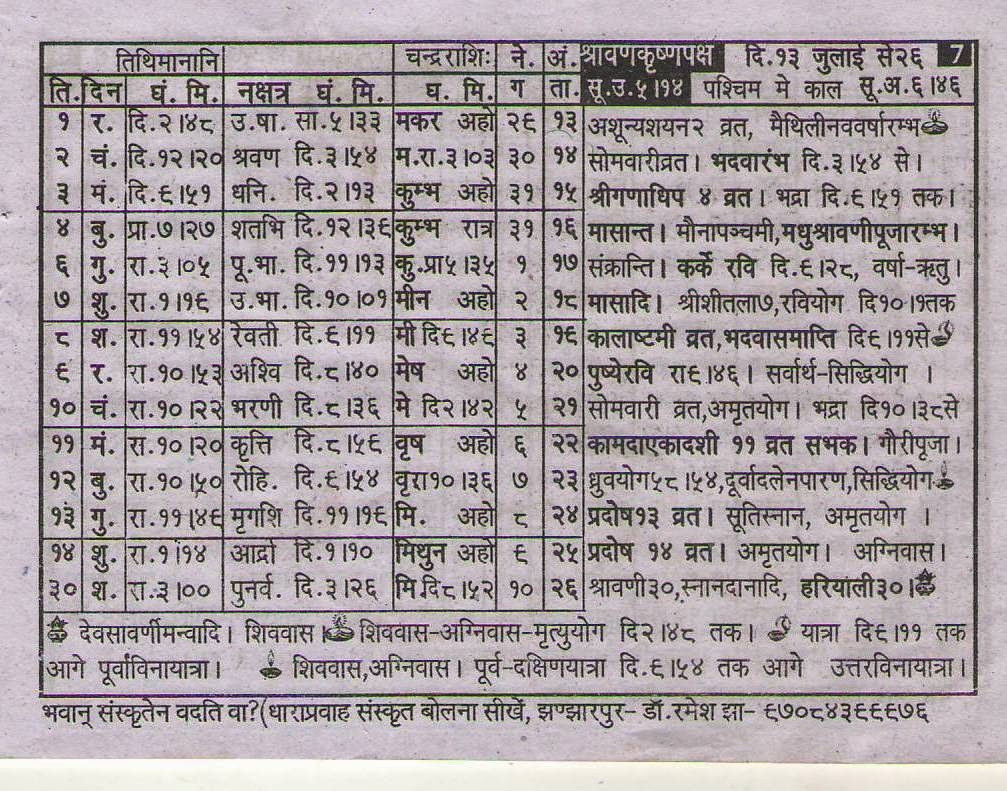 तिथिमानानि चन्द्रराशिः ने. अं. श्रावणकृष्णपक्ष दि.१३ जुलाई से२६ 7
ति. दिन घं. मि. नक्षत्र घं. मि. घ. मि. ग ता. सू.उ.५।१४ पश्चिम मे काल सू.अ.६।४६
१ र. दि.२।४८ उ.षा. सा.५।३३ मकर अहो २९ १३ अशून्यशयन२ व्रत, मैथिलीनववर्षारम्भ
२ चं. दि.१२।२० श्रवण दि.३।५४ म.रा.३।०३ ३० १४ सोमवारीव्रत। भदवारंभ दि.३।५४ से।
३ मं. दि.९।५१ धनि. दि.२।१३ कुम्भ अहो ३१ १५ श्रीगणाधिप ४ व्रत। भद्रा दि.९।५१ तक।
४ बु. प्रा.७।२७ शतभि दि.१२।३९ कुम्भ रात्र ३१ १६ मासान्त। मौनापञ्चमी,मधुश्रावणीपूजारम्भ।
६ गु. रा.३।०५ पू.भा. दि.११।१३ कु.प्रा५।३५ १ १७ संक्रान्ति। कर्के रवि दि.९।२८, वर्षा-ऋतु।
७ शु. रा.१।१९ उ.भा. दि.१०।०१ मीन अहो २ १८ मासादि। श्रीशीतला७,रवियोग दि१०।१तक
८ श. रा.११।५४ रेवती दि.९।११ मी दि९।४९ ३ १९ कालाष्टमी व्रत,भदवासमाप्ति दि९।११से
९ र. रा.१०।५३ अश्वि दि.८।४० मेष अहो ४ २० पुष्येरवि रा९।४६। सर्वार्थ-सिद्धियोग ।
१० चं. रा.१०।२२ भरणी दि.८।३६ मे दि२।४२ ५ २१ सोमवारी व्रत,अमृतयोग। भद्रा दि१०।३८से
११ मं. रा.१०।२० कृत्ति दि.८।५९ वृष अहो ६ २२ कामदाएकादशी ११ व्रत सभक। गौरीपूजा।
१२ बु. रा.१०।५० रोहि. दि.९।५४ वृरा१०।३६ ७ २३ ध्रुवयोग५८।५४,दूर्वादलेनपारण,सिद्धियोग
१३ गु. रा.११।४९ मृगशि दि.११।१९ मि. अहो ८ २४ प्रदोष१३ व्रत। सूतिस्नान, अमृतयोग ।
१४ शु. रा.१।१४ आर्द्रा दि.१।१० मिथुन अहो ९ २५ प्रदोष १४ व्रत। अमृतयोग। अग्निवास।
३० श. रा.३।०० पुनर्व. दि.३।२६ मि.दि८।५२ १० २६ श्रावणी३०,स्नानदानादि, हरियाली३०।
देवसावर्णीमन्वादि। शिववास। शिववास-अग्निवास-मृत्युयोग दि२।४८ तक। यात्रा दि९।११ तक
आगे पूर्वाविनायात्रा। शिववास,अग्निवास। पूर्व-दक्षिणयात्रा दि.९।५४ तक आगे उत्तरविनायात्रा।
भवान् संस्कृतेन वदति वा?(धाराप्रवाह संस्कृत बोलना सीखें, झण्झारपुर- डॉ.रमेश झा- ९७०८४३९९९७६